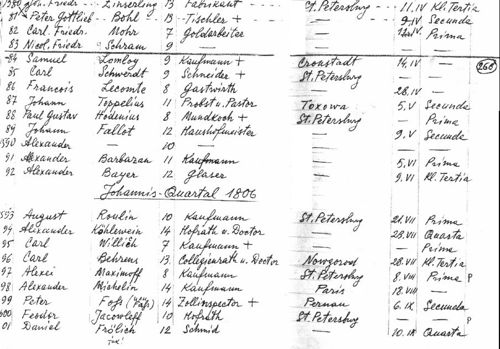 1580 Joh. Friedr. Zinserling 13 Fabrikant — St. Petersburg — 11. IV Kl. Tertia
81 Peter Gottlieb Bohl 13 Tischler + — 9. IV Secunda
82 Carl. Friedr. Mohr 7 Goldarbeiter — Prima
83 Nicol. Friedr. Schram 9
84 Samuel Lomboy 9 Kaufmann + Cronstadt 14. IV — 268
85 Carl Schwerdt 9 Schneider + St. Petersburg —
86 François Lecomte 8 Gastwirth — 28. IV —
87 Johann Toppelius 11 Probst u. Pastor Toxowa 5. V Secunda
88 Paul Gustav Hödenius 8 Mundkoch + St. Petersburg — Prima
89 Johann Fallot 12 Haushofmeister — 9. V Secunda
1590 Alexander — 10
91 Alexander Barbazan 11 Kaufmann — 5. VI Prima
92 Alexander Bayer 12 Glaser — 9. VI Kl. Tertia
Johannis-Quartal 1806
1593 August Roulin 10 Kaufmann St. Petersburg 21. VII Prima
94 Alexander Köhlewein 14 Hofrath u. Doctor — 23. VII Quarta
95 Carl Willich 7 Kaufmann + — — Prima
96 Carl Behrens 13 Collegienrath u. Doctor Nowgorod 28. VII Kl. Tertia
97 Alexei Maximoff 8 Kaufmann St. Petersburg 8. VIII Prima ?
98 Alexander Michelin 14 Kaufmann Paris 18. VIII —
99 Peter Foss (Voss) 14 Zollinspector + Pernau 6. IX Secunda
1600 Feodor Jacowleff 10 Hofrath St. Petersburg — — ?
01 Daniel Frölich 12 Schmid — 10. IX Quarta